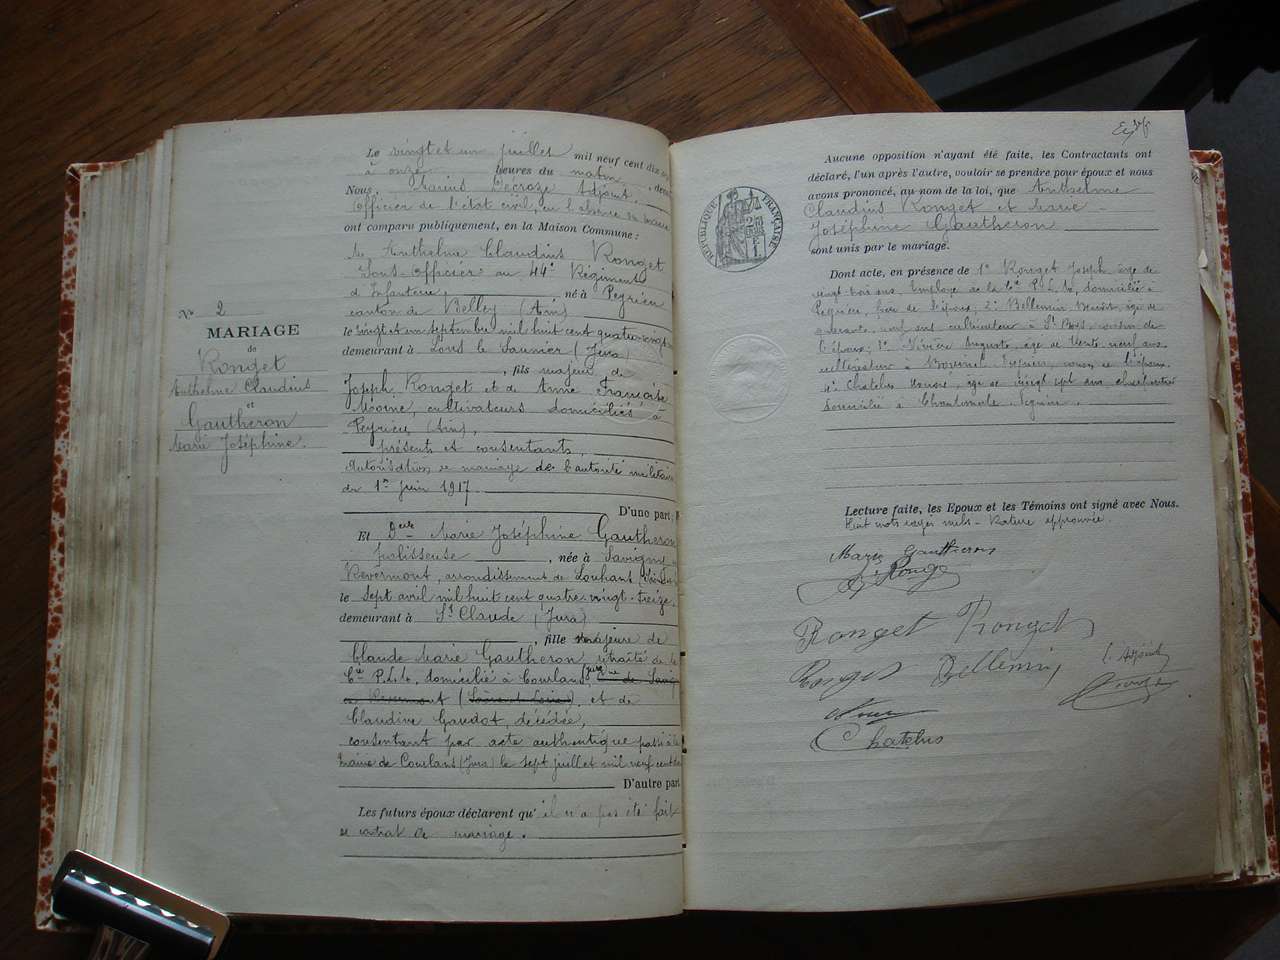 N° 2
MARIAGE
de
Ronget
Anthelme Claudius
et
Gautheron
Marie Joséphine.
Le vingt et un juillet mil neuf cent dix
à onze heures du matin
Nous, Marius Adjoint,
Officier de l'état civil, en l'absence du maire
ont comparu publiquement, en la Maison Commune :
M. Anthelme Claudius Ronget
Sous-Officier au 44e Régiment
d'Infanterie, né à Peyrieu
canton de Belley (Ain)
le vingt et un septembre mil huit cent quatre-vingt
demeurant à Lons le Saunier (Jura)
, fils majeur de
Joseph Ronget et de Anne Françoise
cultivateurs domiciliés à
Peyrieu (Ain),
présents et consentants,
Autorisation de mariage de l'autorité militaire
du 1er juin 1917
D'une part,
Et Delle Marie Joséphine Gautheron
polisseuse, née à Savigny
Revermont, arrondissement de Louhans
le sept avril mil huit cent quatre-vingt-treize,
demeurant à St Claude (Jura)
, fille majeure de
Claude Marie Gautheron, retraité de la
Cie P.L.M., domicilié à Courlans (Jura)
(Saône et Loire), et de
Claudine Gaudot, décédée,
consentant par acte authentique passé à la
mairie de Courlans (Jura) le sept juillet mil neuf cent
D'autre part
Les futurs époux déclarent qu'il n'a pas été fait
de contrat de mariage.
Aucune opposition n'ayant été faite, les Contractants ont
déclaré, l'un après l'autre, vouloir se prendre pour époux et nous
avons prononcé, au nom de la loi, que Anthelme
Claudius Ronget et Marie
Joséphine Gautheron
sont unis par le mariage.
RÉPUBLIQUE FRANÇAISE
Dont acte, en présence de 1° Ronget Joseph, âgé de
vingt trois ans, Employé de la Cie P.L.M., domicilié à
Peyrieu, frère de l'époux; 2° Bellemin âgé de
quarante neuf ans cultivateur à St Bois, cousin de
l'époux; Auguste, âgé de trente neuf ans
cultivateur à cousin de l'époux
4° Chatelus âgé de vingt sept ans
domicilié à
Lecture faite, les Epoux et les Témoins ont signé avec Nous.
Huit mots rayés nuls - Rature approuvée.
Marie Gautheron
Ronget
Ronget Ronget
Ronget Bellemin
L'Adjoint
Chatelus